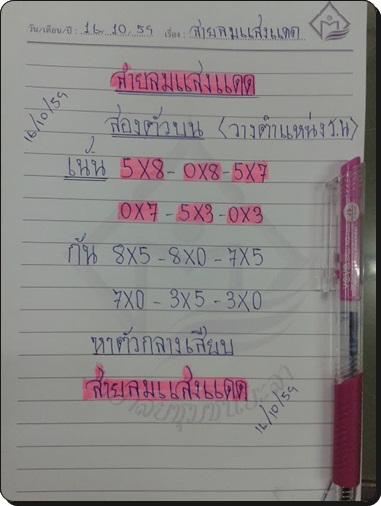 วัน/เดือน/ปี : 16 10 59 เรื่อง : สายลมแสงแดด
สายลมแสงแดด
16/10/59
สองตัวบน (วางตำแหน่ง ร.น)
เน้น 5X8 - 0X8 - 5X7
0X7 - 5X3 - 0X3
กัน 8X5 - 8X0 - 7X5
7X0 - 3X5 - 3X0
หาตัวกลางเสียบ
สายลมแสงแดด
16/10/59